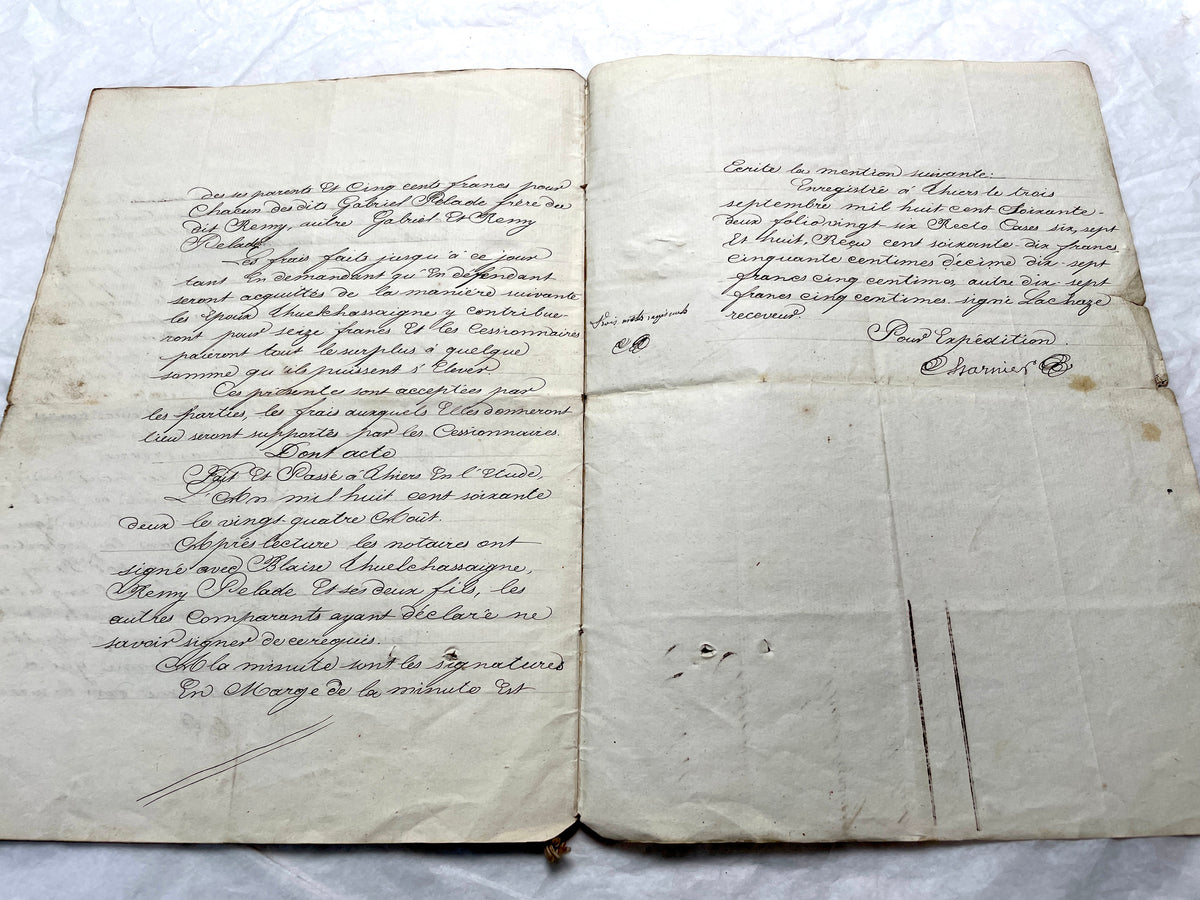 des ses parents Et Cinq cents francs pour
Chacun des dits Gabriel Pelade frère du
dit Remy, autre Gabriel Et Remy
Pelade
Les frais faits jusqu'à ce jour
tant En demandant qu'En défendant
seront acquittés de la manière suivante
les Epoux Thuelchassaigne y contribue-
ront pour seize francs Et les Cessionnaires
paieront tout le surplus à quelque
somme qu'ils puissent s'Elever
Ces présentes sont acceptées par
les parties, les frais auxquels Elles donneront
lieu seront supportés par les Cessionnaires.
Dont acte
Fait Et Passé à Thiers En l'Etude,
L'An mil huit cent soixante
deux le vingt-quatre Août.
Après lecture les notaires ont
signé avec Blaise Thuelchassaigne,
Remy Pelade Et ses deux fils, les
autres Comparants ayant déclaré ne
savoir signer de ce requis.
A la minute sont les signatures
En Marge de la minute Est
Ecrite la mention suivante:
Enregistré à Thiers le trois
septembre mil huit cent Soixante-
deux folio vingt six Recto Cases six, sept
Et huit, Reçu cent soixante-dix francs
cinquante centimes décime dix-sept
francs cinq centimes autre dix-sept
francs cinq centimes. signé Lachaze
receveur.
trois mots
Pour Expédition.
Charnier